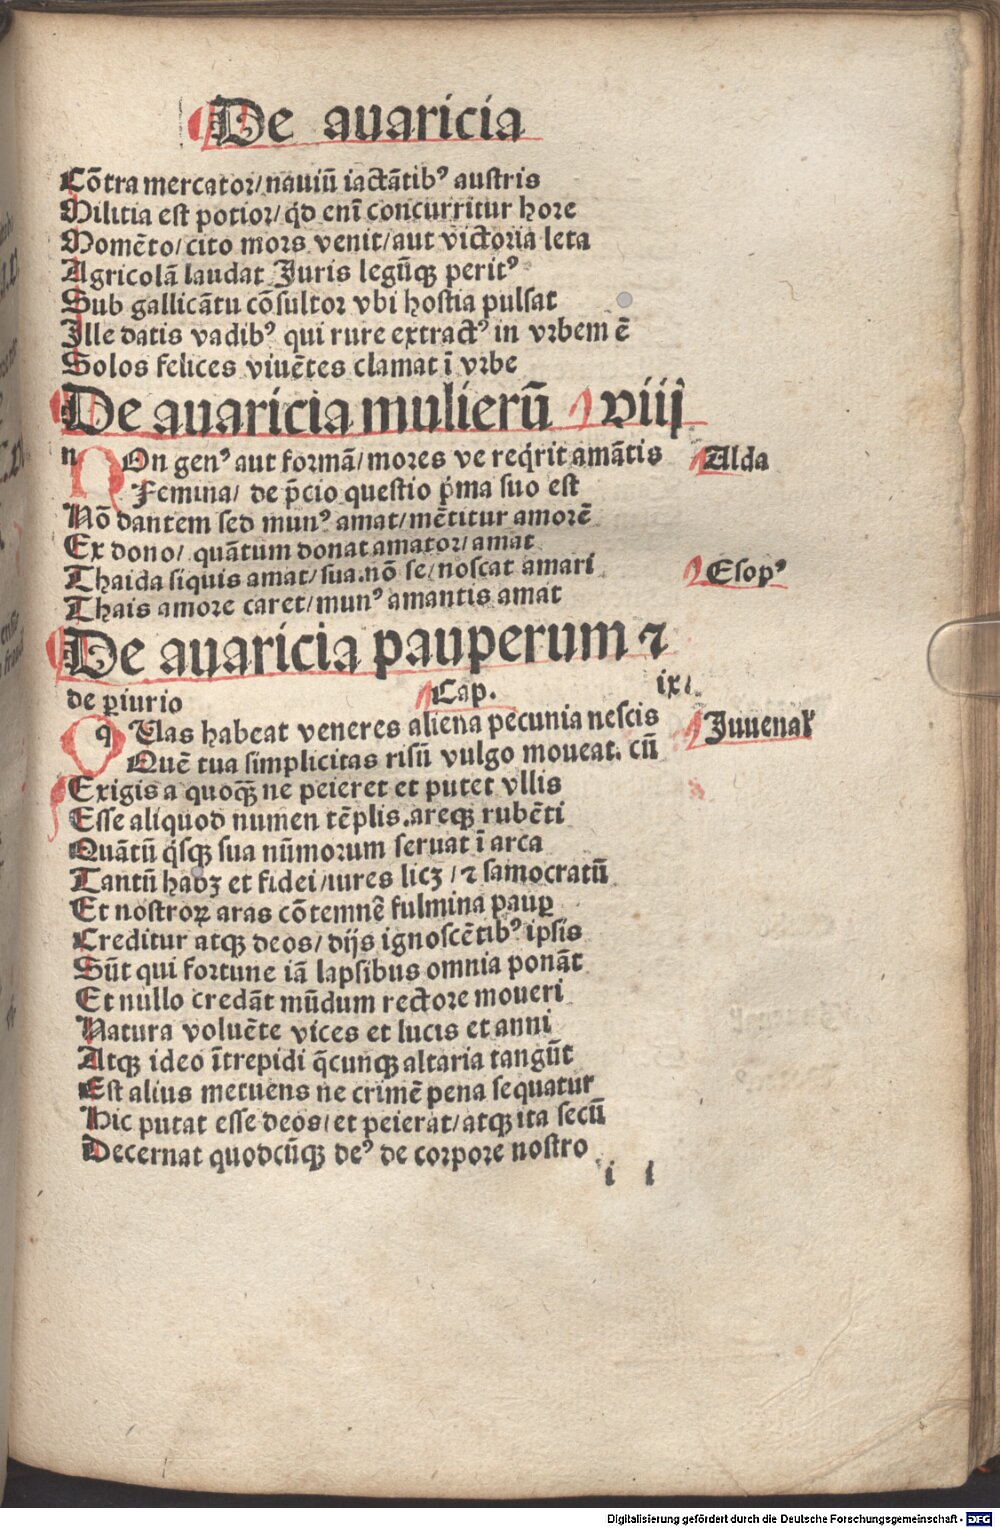 De auaricia
Cōtra mercator/nauiū iactātib⁹ austris
Militia est potior/qd eni concurritur hore
Momēto/cito mors venit/aut victoria leta
Agricolā laudat Juris legūqꝫ perit⁹
Sub gallicātu cōsultor vbi hostia pulsat
Jlle datis vadib⁹ qui rure extract⁹ in vrbem ē
Solos felices viuētes clamat ī vrbe
De auaricia mulierū viij
nOn gen⁹ aut formā/mores ve reqrit amātis Alda
Femina/ de p̄cio questio pma suo est
Nō dantem sed mun⁹ amat/mētitur amorē
Ex dono/ quātum donat amator/amat
Thaida siquis amat/sua.nō se/noscat amari Esop⁹
Thais amore caret/mun⁹ amantis amat
De auaricia pauperum ⁊
de ꝑiurio Cap. ix.
qUas habeat veneres aliena pecunia nescis Juuenal
Quē tua simplicitas risū vulgo moueat. cū
Exigis a quoqꝫ ne peieret et putet vllis
Esse aliquod numen tēplis.areqꝫ rubēti
Quātū qsqꝫ sua nūmorum seruat ī arca
Tantū habꝫ et fidei/iures licꝫ/⁊ samocratū
Et nostroꝝ aras cōtemnē fulmina pauꝑ
Creditur atqꝫ deos/dijs ignoscētib⁹ ipsis
Sūt qui fortune iā lapsibus omnia ponāt
Et nullo credāt mūdum rectore moueri
Natura voluēte vices et lucis et anni
Atqꝫ ideo ītrepidi q̄cunqꝫ altaria tangūt
Est alius metuens ne crimē pena sequatur
Hic putat esse deos/et peierat/atqꝫ ita secū
Decernat quodcūqꝫ de⁹ de corpore nostro
i i
Digitalisierung gefördert durch die Deutsche Forschungsgemeinschaft - DFG